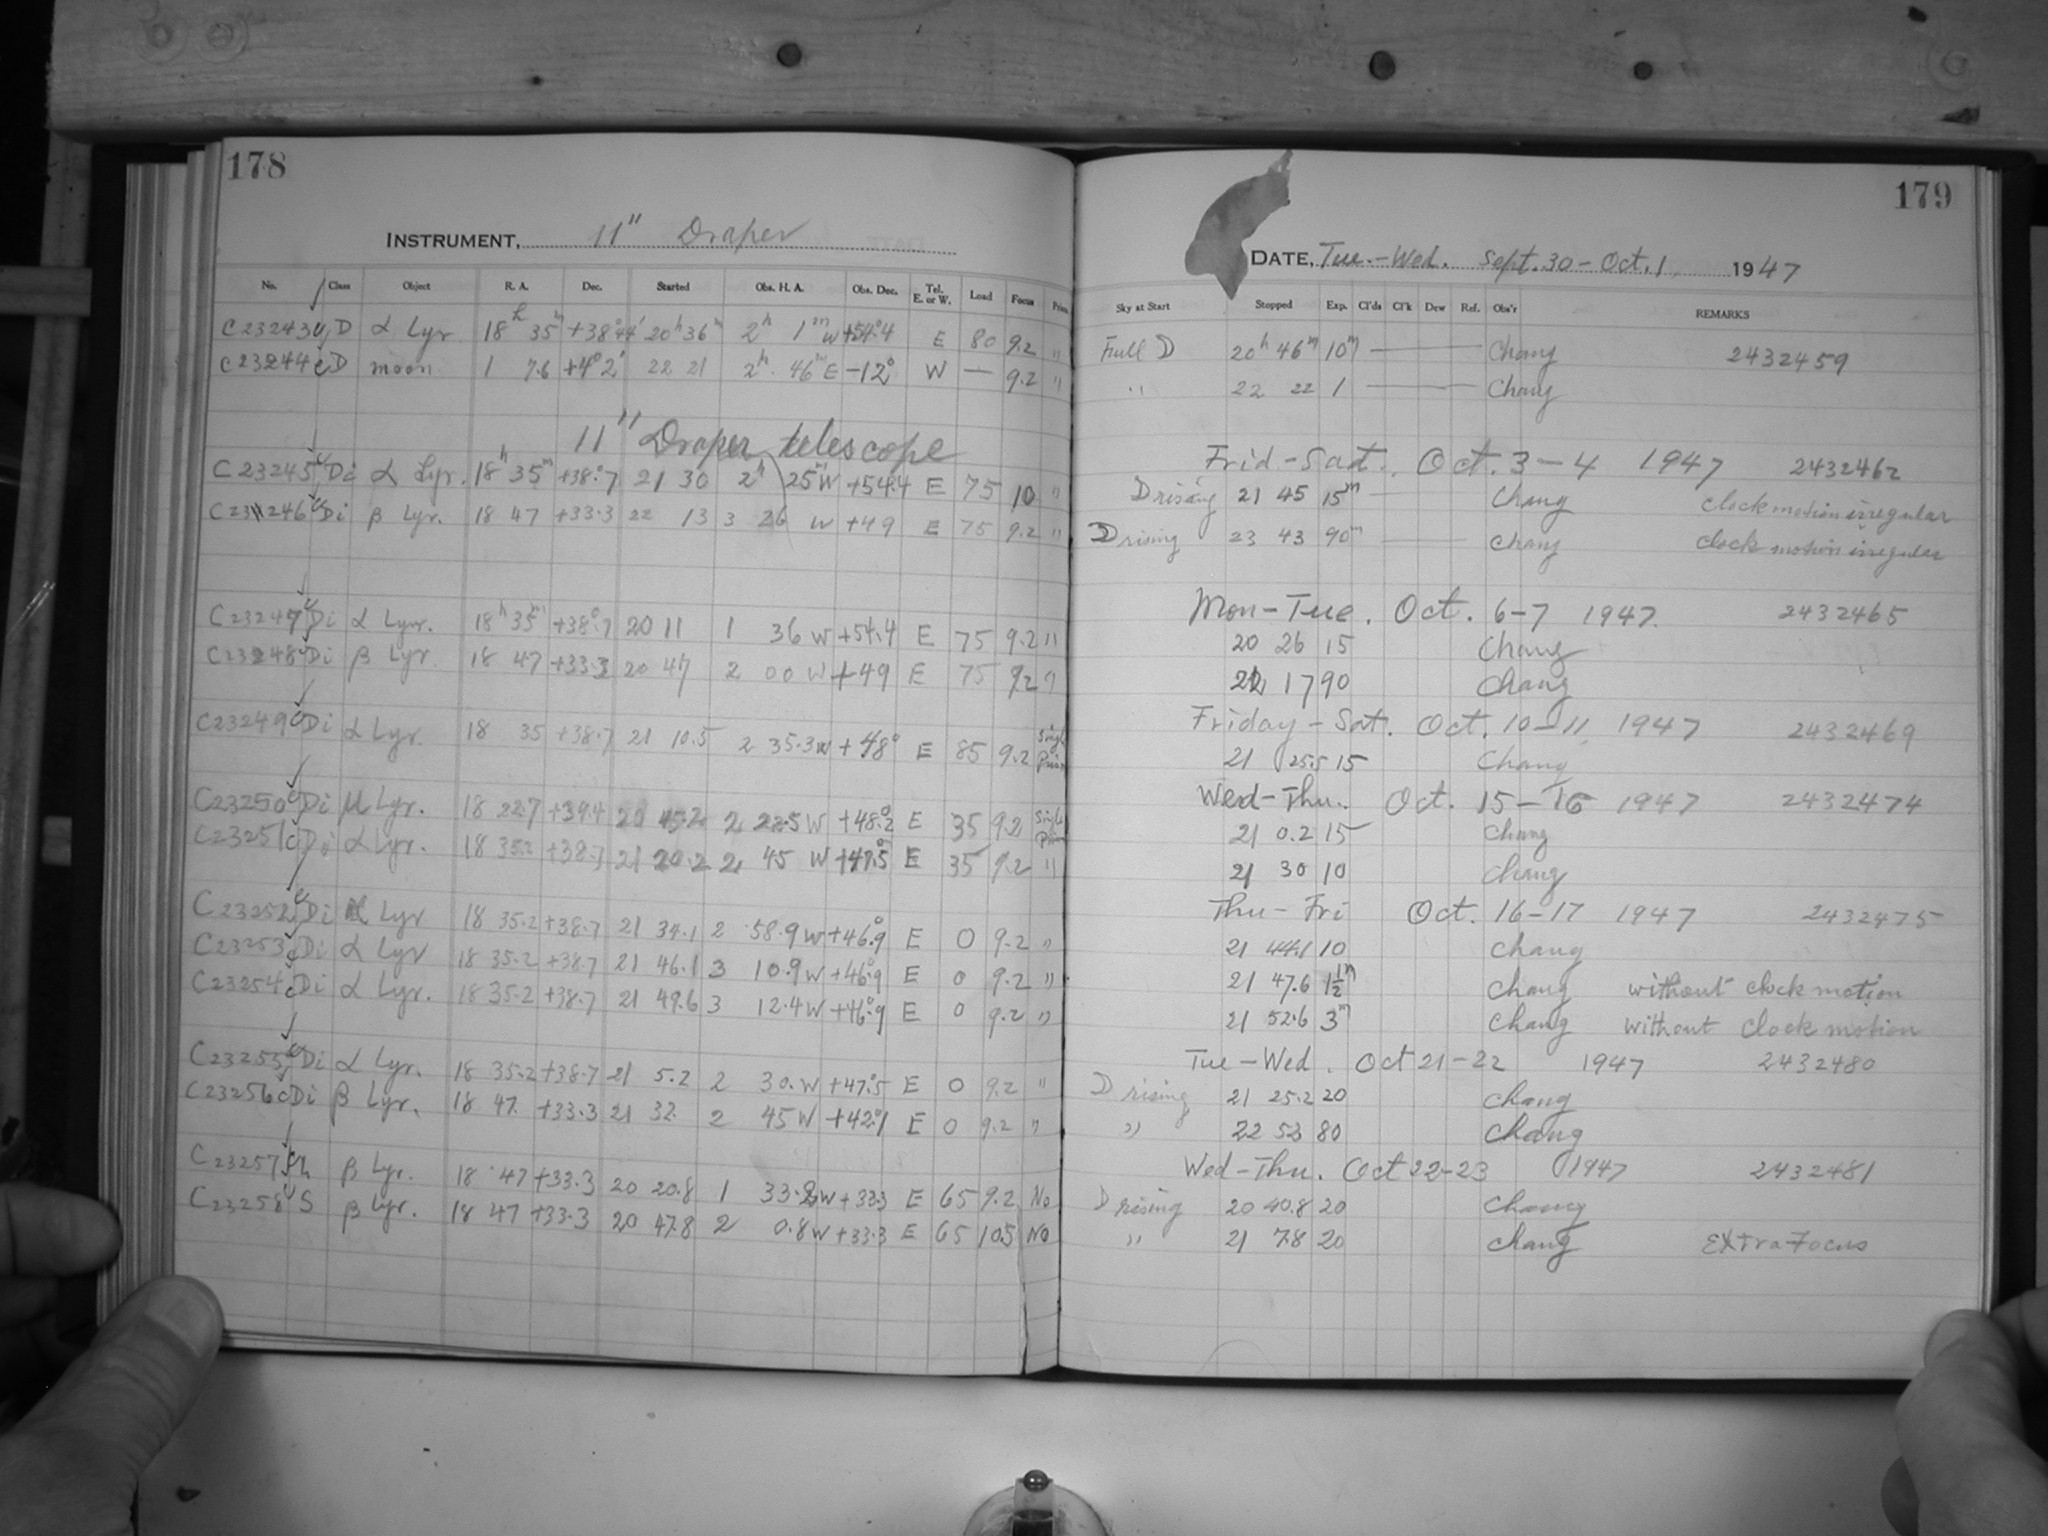 178
INSTRUMENT, 11" Draper
No. Class Object R. A. Dec. Started Obs. H. A. Obs. Dec. Tel. E. or W. Load Focus
C23243 D α Lyr 18h 35m +38°44' 20h 36m 2h 1m W +54°.4 E 80 9.2 "
C23244 D moon 1 7.6 +4°2' 22 21 2h. 46m E -12° W — 9.2 "
11" Draper telescope
C23245 Di α Lyr. 18h 35m +38°.7 21 30 2h 25m W +54.4 E 75 10 "
C23246 Di β Lyr. 18 47 +33.3 22 13 3 26 W +49 E 75 9.2 "
C23247 Di α Lyr. 18h 35m +38°.7 20 11 1 36 W +54.4 E 75 9.2 "
C23248 Di β Lyr. 18 47 +33.3 20 47 2 00 W +49 E 75 9.2 "
C23249 Di α Lyr. 18 35 +38.7 21 10.5 2 35.3 W +48° E 85 9.2 Single Prism
C23250 Di μ Lyr. 18 22.7 +39.4 20 45.2 2 22.5 W +48°.2 E 35 9.2 Single Prism
C23251 Di α Lyr. 18 35.2 +38.7 21 20.2 2 45 W +47°.5 E 35 9.2 "
C23252 Di α Lyr 18 35.2 +38.7 21 34.1 2 58.9 W +46°.9 E 0 9.2 "
C23253 Di α Lyr 18 35.2 +38.7 21 46.1 3 10.9 W +46°.9 E 0 9.2 "
C23254 Di α Lyr. 18 35.2 +38.7 21 49.6 3 12.4 W +46°.9 E 0 9.2 "
C23255 Di α Lyr. 18 35.2 +38.7 21 5.2 2 30. W +47°.5 E 0 9.2 "
C23256 Di β Lyr. 18 47. +33.3 21 32. 2 45 W +42°.1 E 0 9.2 "
C23257 β Lyr. 18 47 +33.3 20 20.8 1 33.8 W +33.3 E 65 9.2 No
C23258 S β Lyr. 18 47 +33.3 20 47.8 2 0.8 W +33.3 E 65 10.5 No
179
DATE, Tue.-Wed. Sept. 30 - Oct. 1, 1947
Sky at Start Stopped Exp. Cl'ds Cl'k Dew Ref. Obs'r REMARKS
Full D 20h 46m 10m — Chang 2432459
" 22 22 1 — Chang
Frid-Sat. Oct. 3-4 1947 2432462
D rising 21 45 15m — Chang clock motion irregular
D rising 23 43 90m — Chang clock motion irregular
Mon-Tue. Oct. 6-7 1947. 2432465
20 26 15 Chang
22 17 90 Chang
Friday-Sat. Oct. 10-11 1947 2432469
21 25.5 15 Chang
Wed-Thu. Oct. 15-16 1947 2432474
21 0.2 15 Chang
21 30 10 Chang
Thu-Fri Oct. 16-17 1947 2432475
21 44.1 10 Chang
21 47.6 1½m Chang without clock motion
21 52.6 3m Chang without clock motion
Tue-Wed. Oct 21-22 1947 2432480
D rising 21 25.2 20 Chang
" 22 53 80 Chang
Wed-Thu. Oct 22-23 1947 2432481
D rising 20 40.8 20 Chang
" 21 7.8 20 Chang Extra Focus